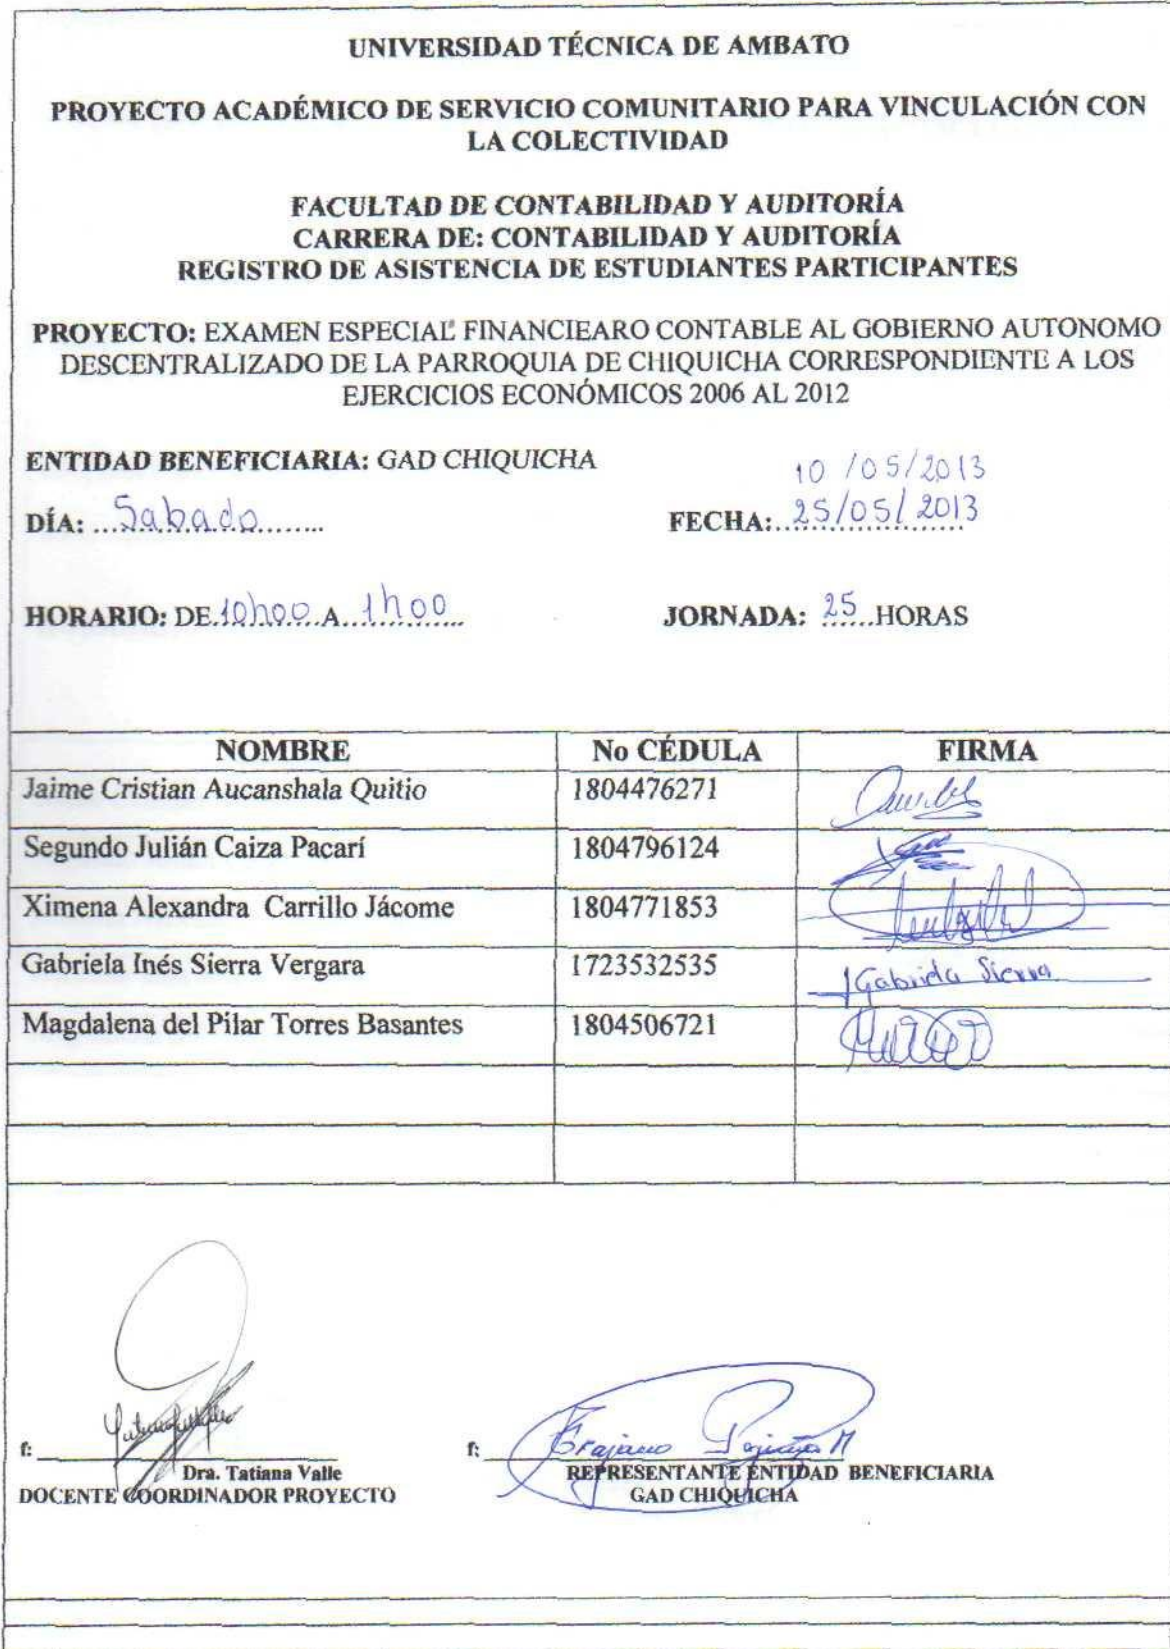 UNIVERSIDAD TÉCNICA DE AMBATO
PROYECTO ACADÉMICO DE SERVICIO COMUNITARIO PARA VINCULACIÓN CON
LA COLECTIVIDAD
FACULTAD DE CONTABILIDAD Y AUDITORÍA
CARRERA DE: CONTABILIDAD Y AUDITORÍA
REGISTRO DE ASISTENCIA DE ESTUDIANTES PARTICIPANTES
PROYECTO: EXAMEN ESPECIAL FINANCIEARO CONTABLE AL GOBIERNO AUTONOMO
DESCENTRALIZADO DE LA PARROQUIA DE CHIQUICHA CORRESPONDIENTE A LOS
EJERCICIOS ECONÓMICOS 2006 AL 2012
ENTIDAD BENEFICIARIA: GAD CHIQUICHA
10/05/2013
DÍA: ...Sabado........ FECHA: 25/05/2013
HORARIO: DE 10h00 A 1h00 JORNADA: 25 HORAS
NOMBRE No CÉDULA FIRMA
Jaime Cristian Aucanshala Quitio 1804476271
Segundo Julián Caiza Pacarí 1804796124
Ximena Alexandra Carrillo Jácome 1804771853
Gabriela Inés Sierra Vergara 1723532535 Gabriela Sierra
Magdalena del Pilar Torres Basantes 1804506721
f: f: Trajano
Dra. Tatiana Valle REPRESENTANTE ENTIDAD BENEFICIARIA
DOCENTE COORDINADOR PROYECTO GAD CHIQUICHA